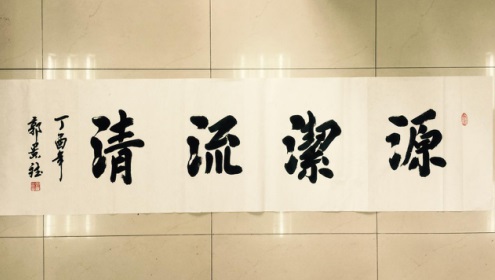 源潔流清
丁酉年
郭景